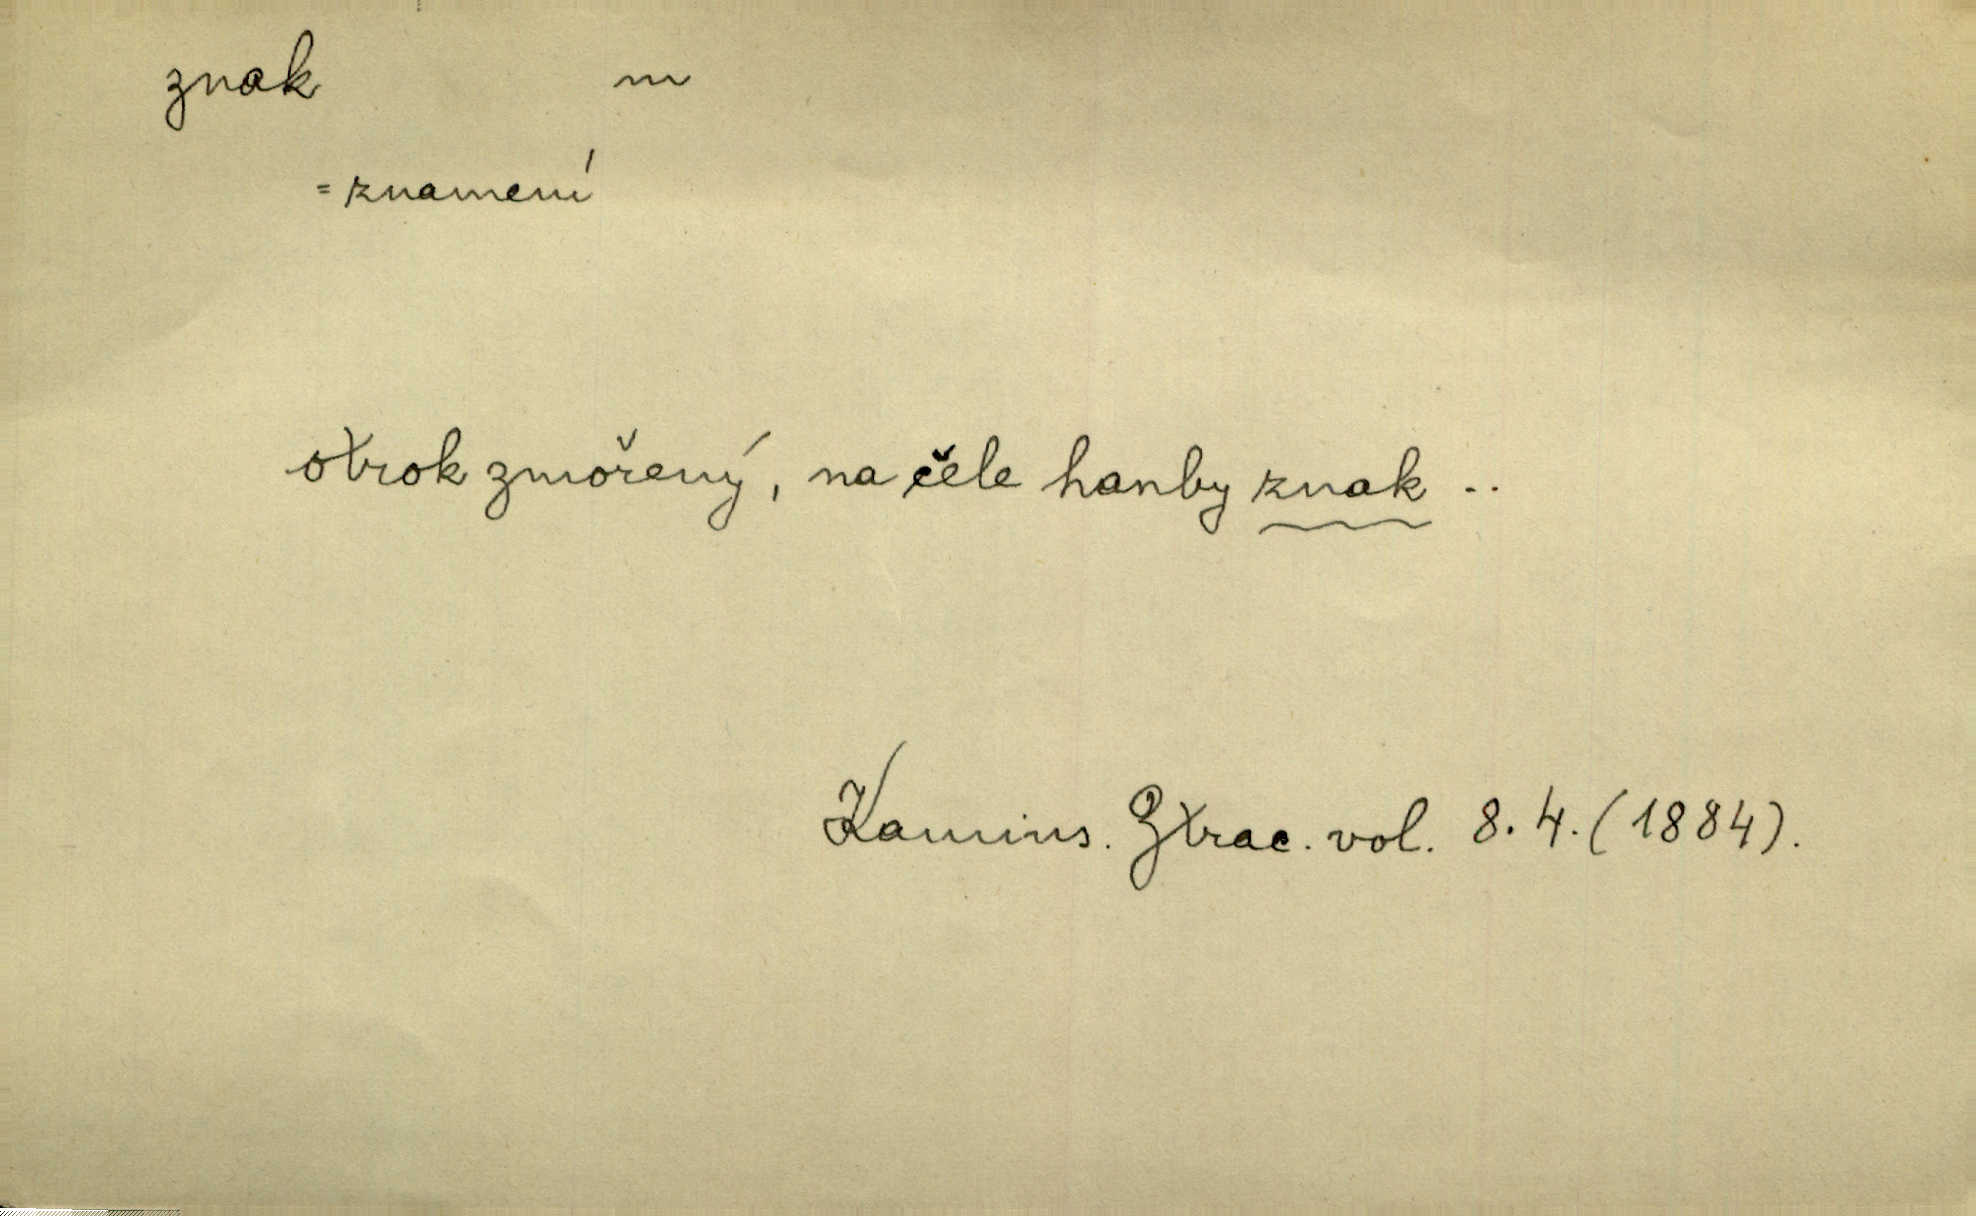 znak m
= znamení
otrok zmořený, na čele hanby znak ..
Kamins. Ztrac. vol. 8. 4. (1884).